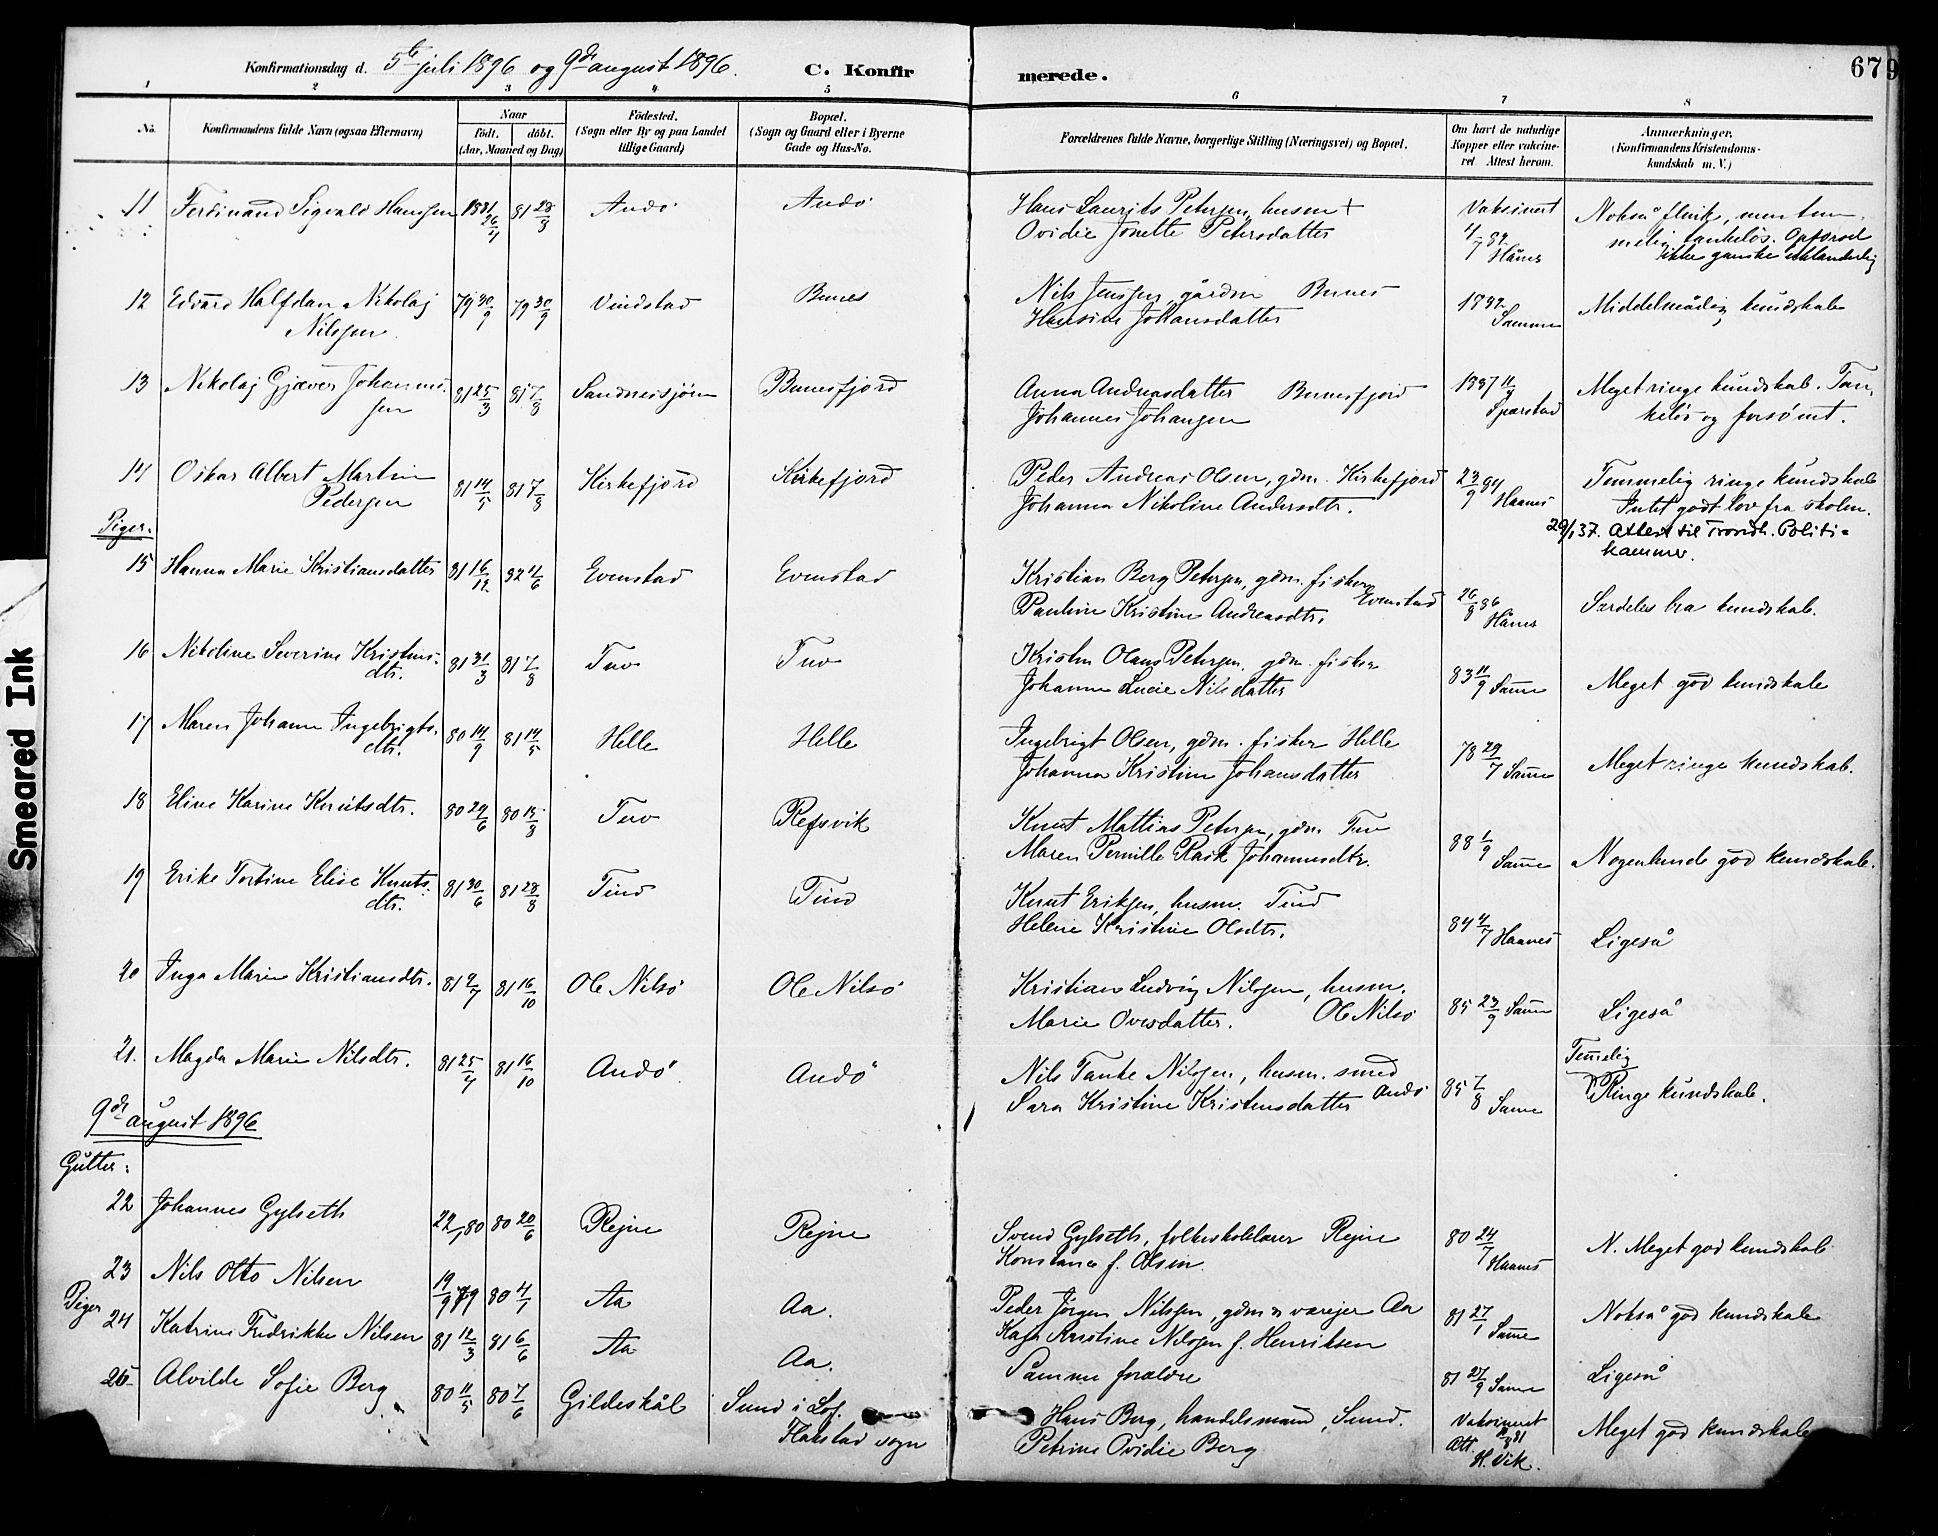 Konfirmationsdag d. 5te juli 1896 og 9de august 1896. C. Konfirmerede. 679
1 2 3 4 5 6 7 8
No. Konfirmandens fulde Navn (ogsaa Efternavn) Naar födt. döbt. (Aar, Maaned og Dag) Födested. (Sogn eller By og paa Landet tillige Gaard) Bopæl. (Sogn og Gaard eller i Byerne Gade og Hus-No. Forældrenes fulde Navne, borgerlige Stilling (Næringsvei) og Bopæl. Om havt de naturlige Kopper eller vakcineret Attest herom. Anmærkninger. (Konfirmandens Kristendomskundskab m. V.)
11 Ferdinand Sigvald Hansen 1881 26/4 81 28/8 Andö Andö Hans Laurits Petersen, husm + Vaksinert Nokså flink, men tem-
Ovidie Jonette Petersdatter 4/7 82 Hånes melig tankelös. Opförsel
ikke ganske
12 Edvard Halfdan Nikolaj 79 30/9 79 30/9 Vindstad Bunes Nils Jensen, gårdm Bunes 1882 Middelmådig kundskab
Nilsen Hansine Johansdatter Samme
13 Nikolaj Gjæver Johannes- 81 25/3 81 7/8 Sandnessjöen Bunesfjord Anna Andreasdatter Bunesfjord 1887 11/9 Meget ringe kundskab. Tan-
sen Johannes Johansen kelös og forsömt.
14 Oskar Albert Martin 81 14/5 81 7/8 Kirkefjord Kirkefjord Peder Andreas Olsen, gdm. Kirkefjord 23/9 84 Temmelig ringe kundskab
Pedersen Johanna Nikoline Andersdtr. Haanes Intet godt lov fra skolen.
Piger. 29/1 37. Attest til Trondh. Politi-
kammer.
15 Hanna Marie Kristiansdatter 81 16/12 82 11/6 Evenstad Evenstad Kristian Berg Petersen, gdm. fisker Evenstad 26/8 86 Særdeles bra kundskab.
Pauline Kristine Andreasdtr. Hånes
16 Nikoline Severine Kristens- 81 31/3 81 7/8 Tuv Tuv Kristen Olaus Petersen, gdm. fisker 83 11/9 Samme Meget god kundskab
dtr. Johanne Lucie Nilsdatter
17 Maren Johanne Ingebrigts- 80 14/9 81 14/5 Helle Helle Ingebrigt Olsen, gdm. fisker Helle 78 29/7 Samme Meget ringe kundskab.
dtr. Johanna Kristine Johansdatter
18 Eline Karine Knutsdtr. 80 24/6 80 15/8 Tuv Refsvik Knut Mathias Petersen, gdm Tuv 88 1/9 Samme Nogenlunde god kundskab.
Maren Pernille Rask Johannesdtr.
19 Erike Tortine Elise Knuts- 81 30/6 81 28/8 Tind Tind Knut Eriksen, husm. Tind 84 4/7 Haanes Ligeså
dtr. Helene Kristine Olsdtr.
20 Inga Marie Kristiansdtr. 81 2/7 81 16/10 Ole Nilsö Ole Nilsö Kristian Ludvig Nilsen, husm. 85 23/9 Samme Ligeså
Marie Ovesdatter. Ole Nilsö
21. Magda Marie Nilsdtr. 81 25/4 81 16/10 Andö Andö Nils Tanke Nilsen, husm. smed Andö 85 7/8 Samme Temelig
Sara Kristine Kristensdatter Ringe kundskab.
9de august 1896
Gutter:
22 Johannes Gylseth 22/1 80 80 20/6 Rejne Rejne Svend Gylseth, folkeskolelærer Rejne 80 24/7 Haanes N. Meget god kundskab
Konstance f. Olsen.
23 Nils Otto Nilsen 19/9 79 80 4/1 Aa Aa. Peder Jörgen Nilsen, gdm & værejer Aa 81 27/1 Samme Nokså god kundskab
Kristine Nilsen f. Henriksen
Piger
24 Katrine Fredrikke Nilsen 81 12/3 81 6/6 Aa Aa. Samme forældre 81 27/9 Samme Ligeså
25 Alvilde Sofie Berg 80 11/5 80 7/6 Gildeskål Sund i Lof. Hans Berg, handelsmand, Sund. Vaksineret Meget god kundskab
Flakstad sogn Petrine Ovidie Berg Att. H. Vik.
Smeared Ink